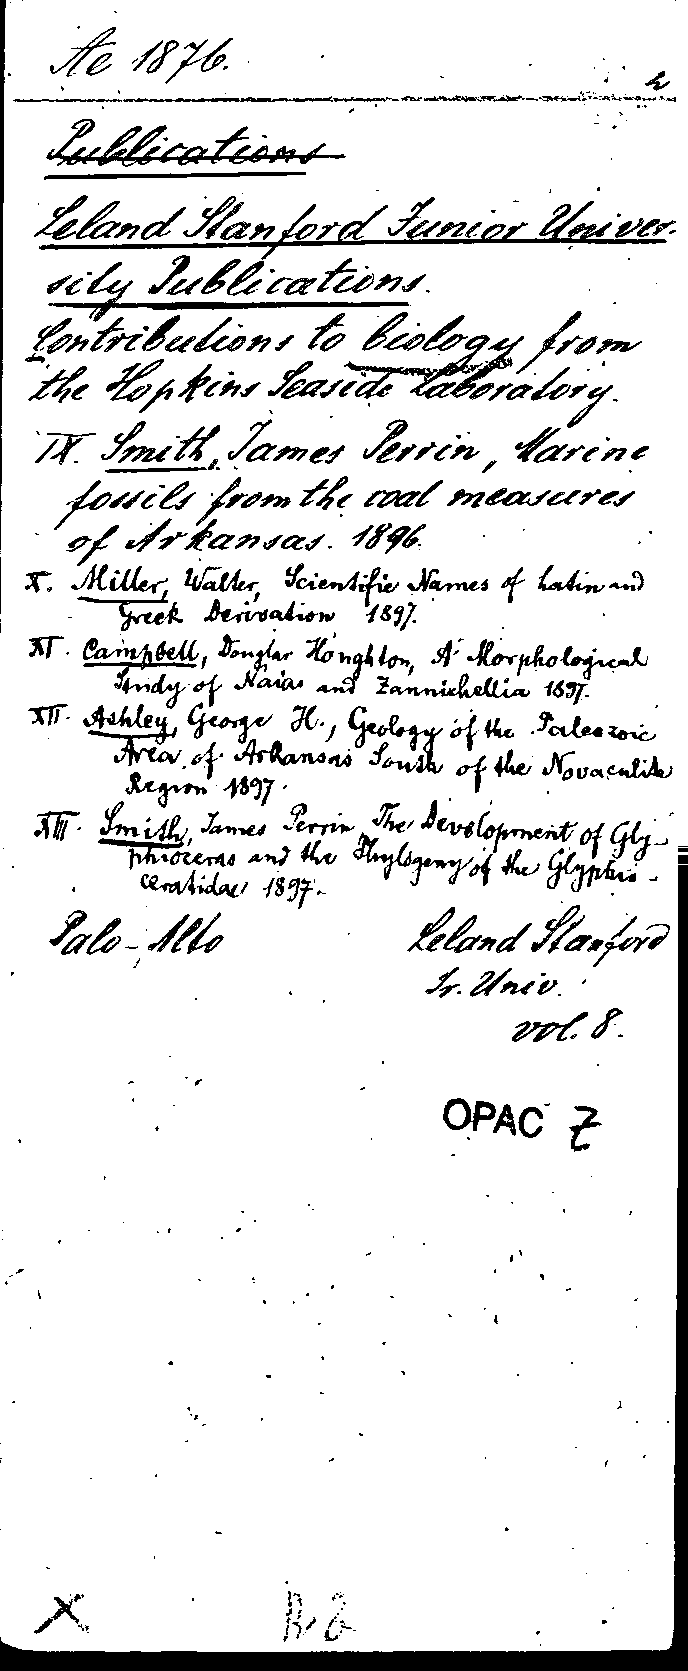 Ae 1876.
2
Publications
Leland Stanford Junior Univer-
sity Publications.
Contributions to biology from
the Hopkins Seaside Laboratory.
IX. Smith, James Perrin, Marine
fossils from the coal measures
of Arkansas. 1896.
X. Miller, Walter, Scientific Names of Latin and
Greek Derivation 1897.
XI. Campbell, Douglas Houghton, A Morphological
Study of Naias and Zannichellia 1897.
XII. Ashley, George H., Geology of the Paleozoic
Area of Arkansas South of the Novaculite
Region 1897.
XIII. Smith, James Perrin, The Development of Gly-
phioceras and the Phylogeny of the Glyphio-
ceratidae 1897.
Palo-Alto Leland Stanford
Jr. Univ.
vol. 8.
OPAC Z
X